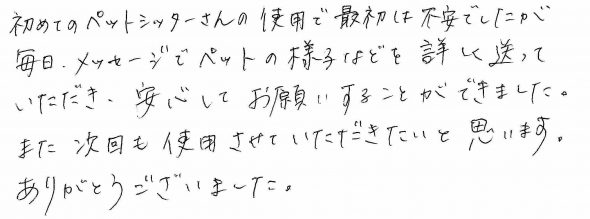 初めてのペットシッターさんの使用で最初は不安でしたが
毎日、メッセージでペットの様子などを詳しく送って
いただき、安心してお願いすることができました。
また次回も使用させていただきたいと思います。
ありがとうございました。